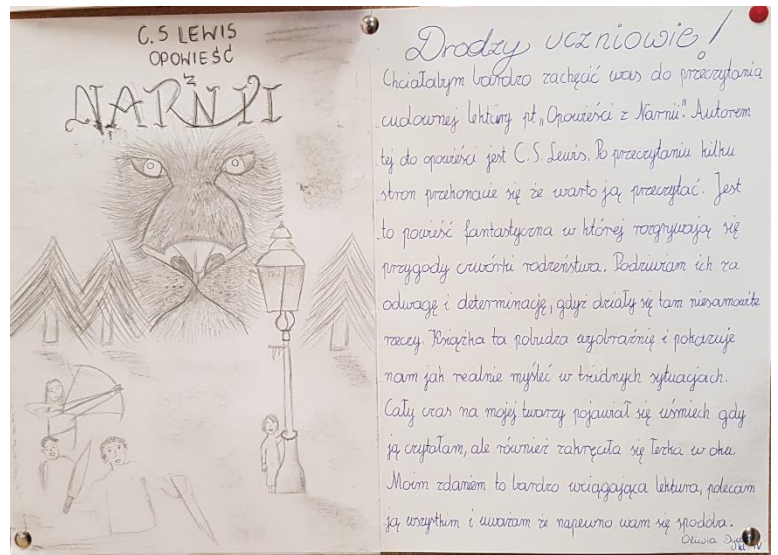 C.S LEWIS
OPOWIEŚĆ
z
NARNII
Drodzy uczniowie!
Chciałabym bardzo zachęcić was do przeczytania
cudownej lektury pt. „Opowieści z Narnii." Autorem
tej do opowieści jest C.S. Lewis. Po przeczytaniu kilku
stron przekonacie się że warto ją przeczytać. Jest
to powieść fantastyczna w której rozgrywają się
przygody czwórki rodzeństwa. Podziwiam ich za
odwagę i determinację, gdyż działy się tam niesamowite
rzeczy. Książka ta pobudza wyobraźnię i pokazuje
nam jak realnie myśleć w trudnych sytuacjach.
Cały czas na mojej twarzy pojawiał się uśmiech gdy
ją czytałam, ale również zakręciła się łezka w oku.
Moim zdaniem to bardzo wciągająca lektura, polecam
ją wszystkim i uważam że napewno wam się spodoba.
Oliwia
kl. IV